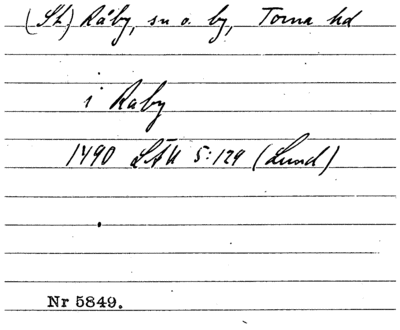 (St) Råby, sn o. by, Torna hd
i Raby
1490 LÄU 5:129 (Lund)
Nr 5849.